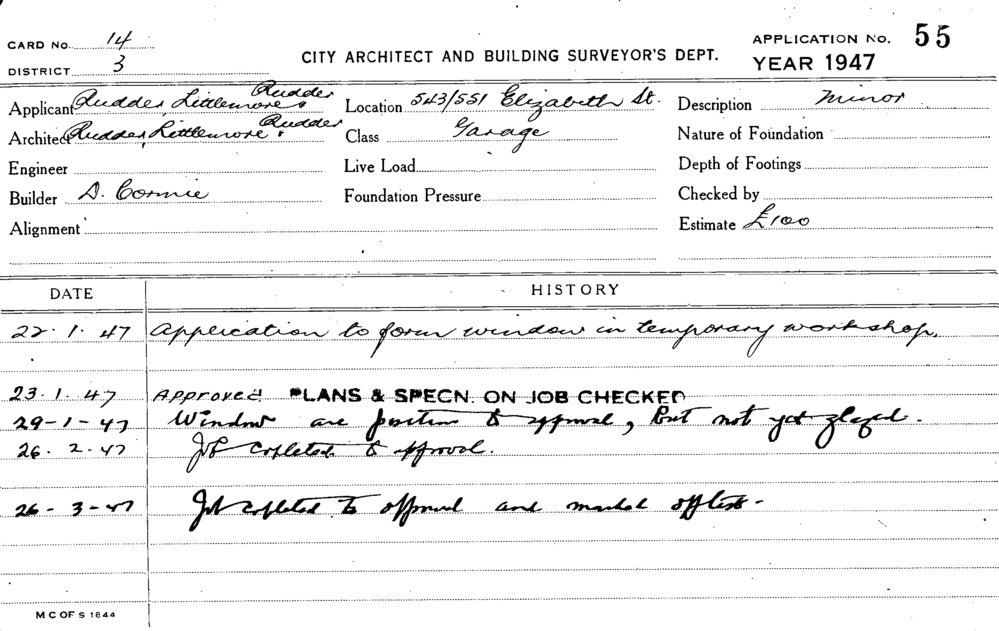 CARD No. 14
DISTRICT 3
CITY ARCHITECT AND BUILDING SURVEYOR'S DEPT.
APPLICATION No. 55
YEAR 1947
Applicant Rudder, Littlemore & Rudder
Location 543/551 Elizabeth St.
Description Minor
Architect Rudder, Littlemore & Rudder
Class Garage
Nature of Foundation
Engineer
Live Load
Depth of Footings
Builder D. Cornie
Foundation Pressure
Checked by
Alignment
Estimate £100
DATE HISTORY
22.1.47 Application to form window in temporary workshop.
23.1.47 Approved PLANS & SPECN. ON JOB CHECKED
29-1-47 Window are position to approval, but not yet glazed.
26.2.47 Job copleted to approval.
26-3-47 Job copleted to approval and marked off
M C OF S 1844